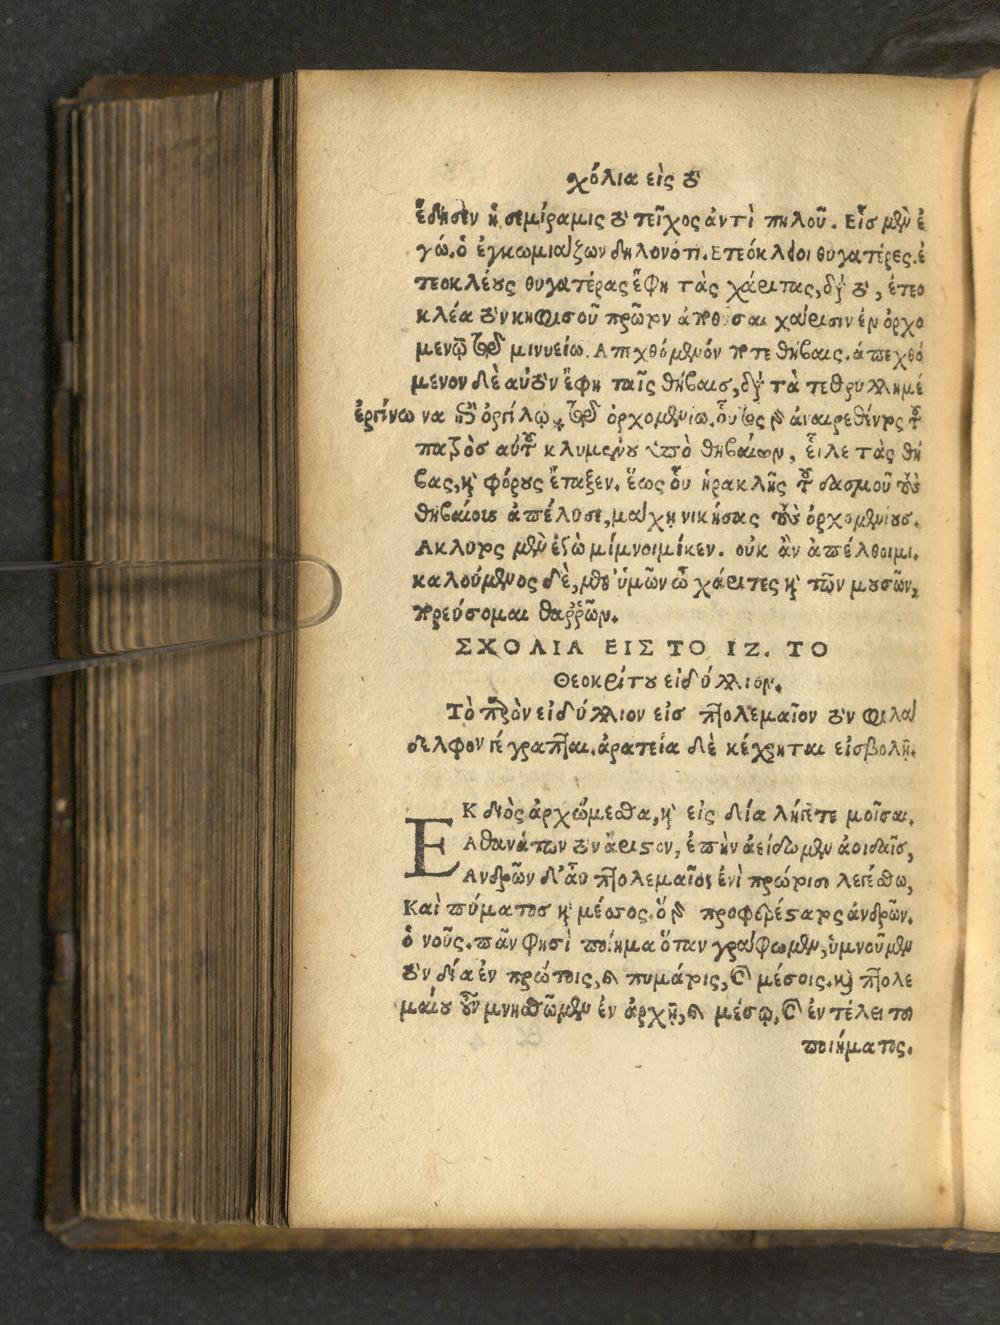 χόλια εἰς τὸ
ἔδησεν ἡ σεμίραμις τὸ τεῖχος ἀντὶ πηλοῦ. Εἷσ μὲν ἐ
γώ. ὁ ἐγκωμιάζων δηλονότι. Ετεόκλειοι θυγατέρες. ἐ
τεοκλέους θυγατέρας ἔφη τὰς χάριτας, διὰ τὸ, ἐτεο
κλέα τὸν κηφισοῦ πρῶτον θῦσαι χάρισιν ἐν ὀρχο
μενῷ τῷ μινυείῳ. Απεχθόμενόν ποτε θήβαις. ἀπεχθό
μενον δὲ αὐτὸν ἔφη ταῖς θήβαισ, διὰ τὰ τεθρυλλημέ
ἐργίνω να ὀργίλῳ τῷ ὀρχομενίω. οὗτος γὰρ ἀναιρεθέντος τοῦ
πατρὸσ αὐτοῦ κλυμένου ὑπὸ θηβαίων, εἷλε τὰς θή
βας, καὶ φόρους ἔταξεν. ἕως οὗ ἡρακλῆς τοῦ δασμοῦ τοὺς
θηβαίους ἀπέλυσε, μάχῃ νικήσας τοὺς ὀρχομενίουσ.
Ακλητος μὲν ἐγὼ μίμνοιμί κεν. οὐκ ἂν ἀπέλθοιμι.
καλούμενος δὲ, μεθ' ὑμῶν ὦ χάριτες καὶ τῶν μουσῶν,
πορεύσομαι θαῤῥῶν.
ΣΧΟΛΙΑ ΕΙΣ ΤΟ ΙΖ. ΤΟ
Θεοκρίτου εἰδύλλιον.
Τὸ παρὸν εἰδύλλιον εἰσ πτολεμαῖον τὸν φιλά
δελφον γέγραπται. ἀρατεία δὲ κέχρηται εἰσβολῇ.
ΕΚ διὸς ἀρχώμεσθα, καὶ εἰς δία λήγετε μοῖσαι.
Αθανάτων τὸν ἄριστον, ἐπὴν ἀείδωμεν ἀοιδαῖσ,
Ανδρῶν δ' αὖ πτολεμαῖος ἐνὶ πρώτοισι λεγέσθω,
Καὶ πύματοσ καὶ μέσσος. ὁ γὰρ προφερέστατος ἀνδρῶν.
ὁ νοῦς. πᾶν φησὶ ποίημα ὅταν γράφωμεν, ὑμνοῦμεν
τὸν δία ἐν πρώτοις, καὶ πυμάτοις, καὶ μέσοις. καὶ πτολε
μαίου οὖν μνησθῶμεν ἐν ἀρχῇ, καὶ μέσῳ, καὶ ἐν τέλει τοῦ
ποιήματος.